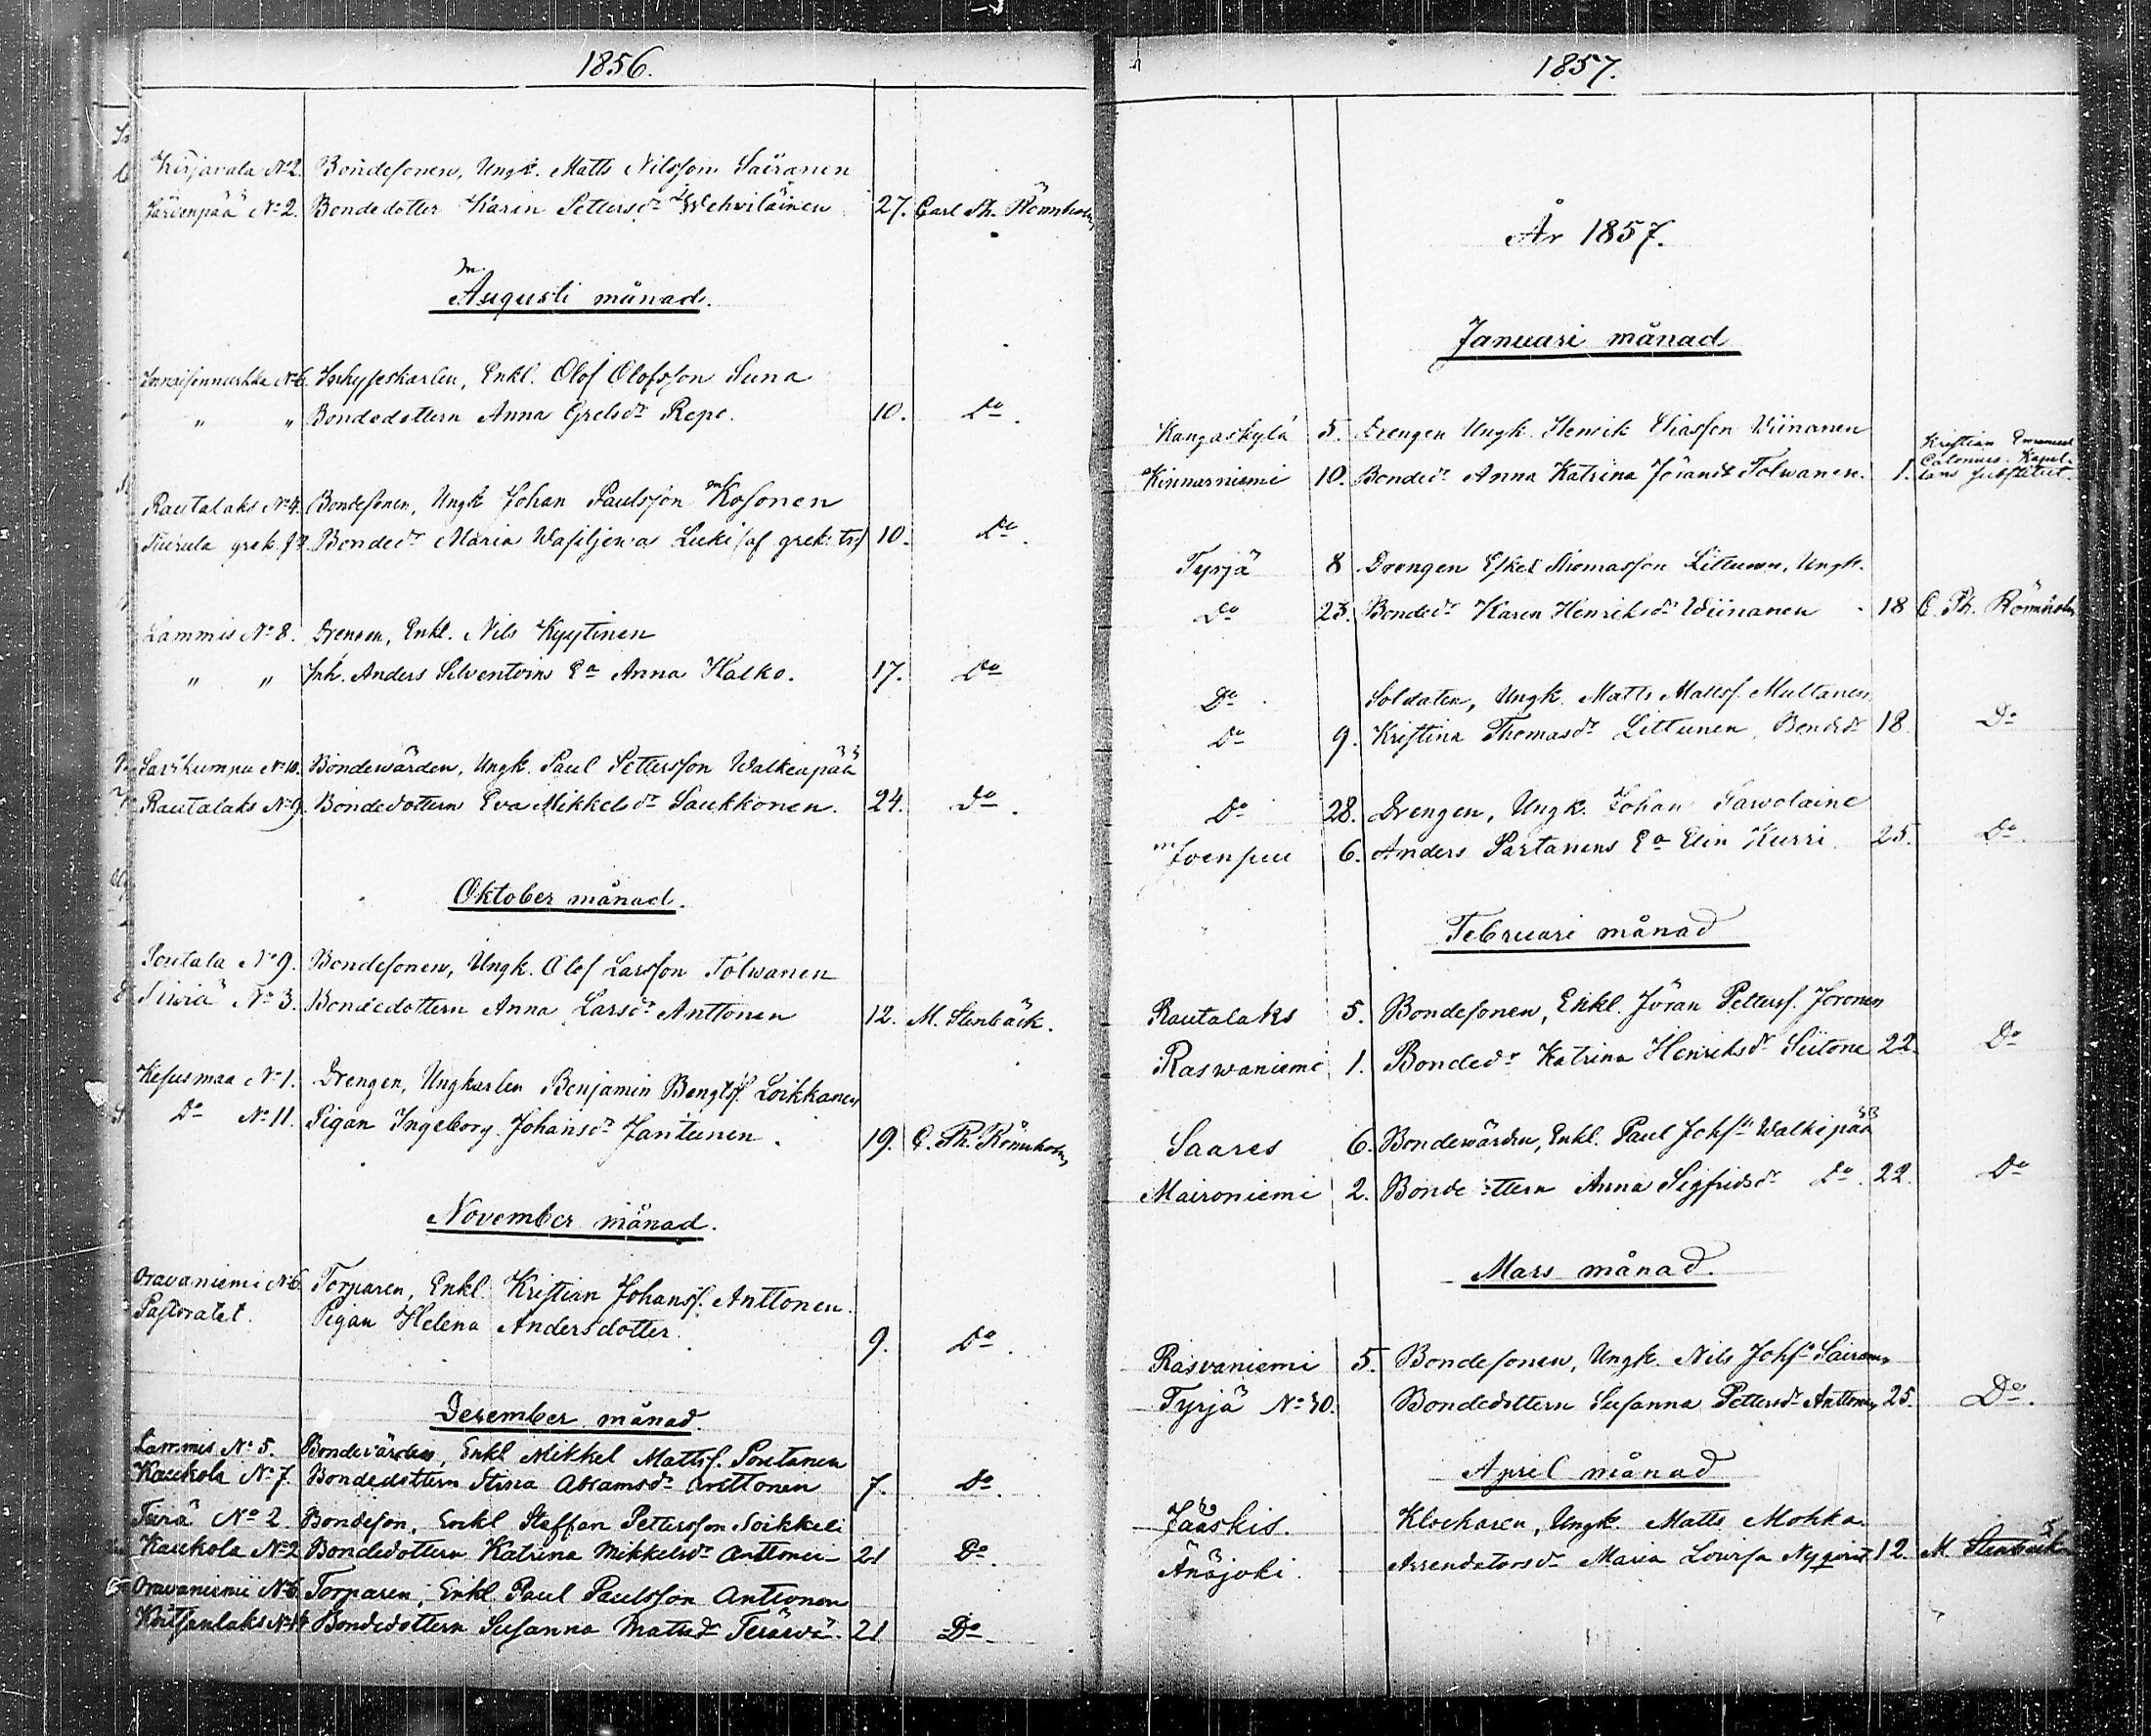 1856.
Kirjavala No 2. Bondesonen, Ungk. Matts Nilsson Sairanen
Järvenpää No 2. Bondedotter Karin Pettersdr Wehviläinen 27. Carl Ph. Rönnholm
Augusti månad.
No 6. Inhyseskarlen, Enkl. Olof Olofsson Suna
" " Bondedottern Anna Grelsdr Repo. 10. Do.
Rautalaks No 4. Bondesonen, Ungk Johan Paulsson Kosonen
grek. Bondedr Maria Wasiljewa Luki (af grek. tr.) 10. Do.
Lammis No 8. Drengen, Enkl. Nils Kyytinen
" " Inh. Anders Silventoins Ea Anna Halko. 17. Do
Sarikumpu No 10. Bondewärden, Ungk. Paul Pettersson Walkeapää
Rautalaks No 9. Bondedottern Eva Mikkelsdr Saukkonen. 24. Do.
Oktober månad.
Soutala No 9. Bondesonen, Ungk. Olof Larsson Tolwanen
No 3. Bondedottern Anna Larsdr Anttonen 12. M. Stenbäck.
Kesusmaa No 1. Drengen, Ungkarlen Benjamin Bengtss. Loikkanen
Do No 11. Pigan Ingeborg Johansdr Jantunen. 19. C. Ph. Rönnholm
November månad.
Oravaniemi No 6. Torparen, Enkl. Kristian Johanss. Anttonen.
Pastoratet. Pigan Helena Andersdotter. 9. Do.
December månad.
Lammis No 5. Bondevärden, Enkl Mikkel Mattss. Poutanen
Kaukola No 7. Bondedottern Abramsdr Anttonen 7. Do.
No 2. Bondeson, Enkl Staffan Pettersson Soikkeli
Kaukola No 2 Bondedottern Katrina Mikkelsdr Anttonen 21 Do.
Oravaniemi No 6 Torparen, Enkl. Paul Paulsson Anttonen
No 14 Bondedottern Susanna Matsdr Terävä. 21 Do.
1857.
År 1857.
Januari månad
Kangaskylä 5. Drengen Ungk. Henrik Eliasson Wiinanen
Kinnarniemi 10. Bondedr Anna Katrina Jöransdr Tolwanen. 1. Kristian Emanuel Calonius. Kapellans substitut.
Tyrjä 8 Drengen Eskel Thomasson Littunen, Ungk.
Do 23. Bondedr Karen Henriksdr Wiinanen 18 C. Ph. Rönnholm
Do. Soldaten, Ungk. Matts Mattss. Multanen
Do 9. Kristina Thomasdr Littunen, Bondedr 18 Do
Do 28. Drengen, Ungk. Johan Sawolaine
Joensuu 6. Anders Partanens Ea Elin Kurri. 25. Do.
Februari månad
Rautalaks 5. Bondesonen, Enkl. Jöran Petterss. Joronen
Raswaniemi 1. Bondedr Katrina Henriksdr Siitone 22 Do
Saares 6. Bondewärden, Enkl. Paul Johsn Walkipää
Maironiemi 2. Bondedottern Anna Sigfridsdr Do 22. Do
Mars månad.
Rasvaniemi 5. Bondesonen, Ungk. Nils Johsn Sairan
Tyrjä No 30. Bondedottern Susanna Pettersdr Anttonen 25. Do.
April månad
Jääskis. Klockaren, Ungk. Matts Mohka.
Änäjoki. Arrendatorsdr Maria Lovisa Nyqvist 12. M. Stenbäck